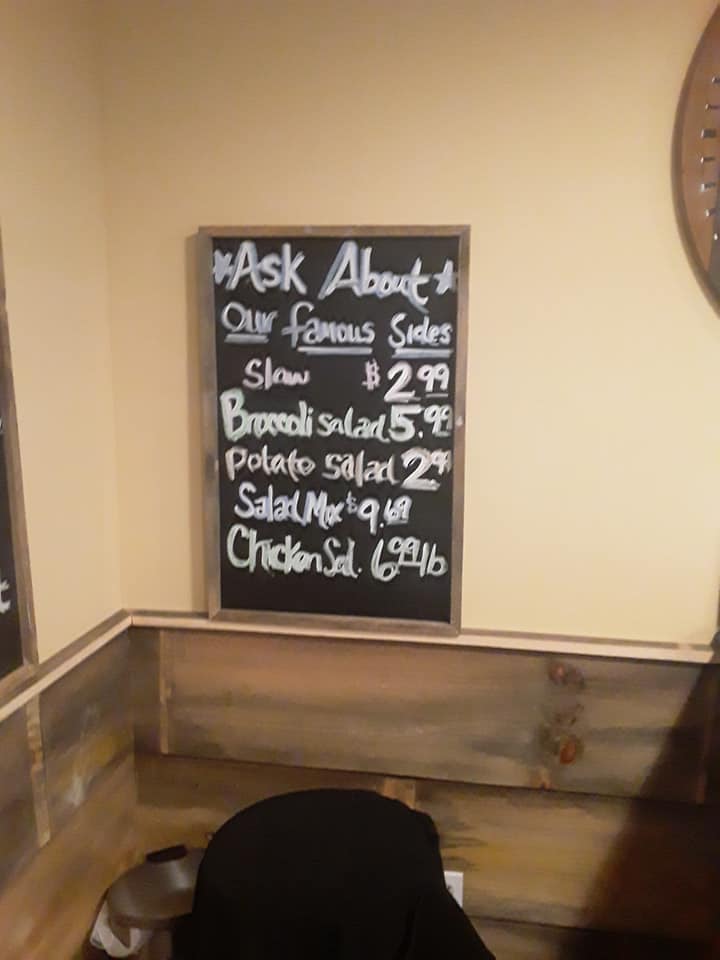 *Ask About*
Our famous Sides
Slaw $2.99
Broccoli salad 5.99
Potato Salad 2.99
Salad Mix $9.69
Chicken Sal. 6.99 lb